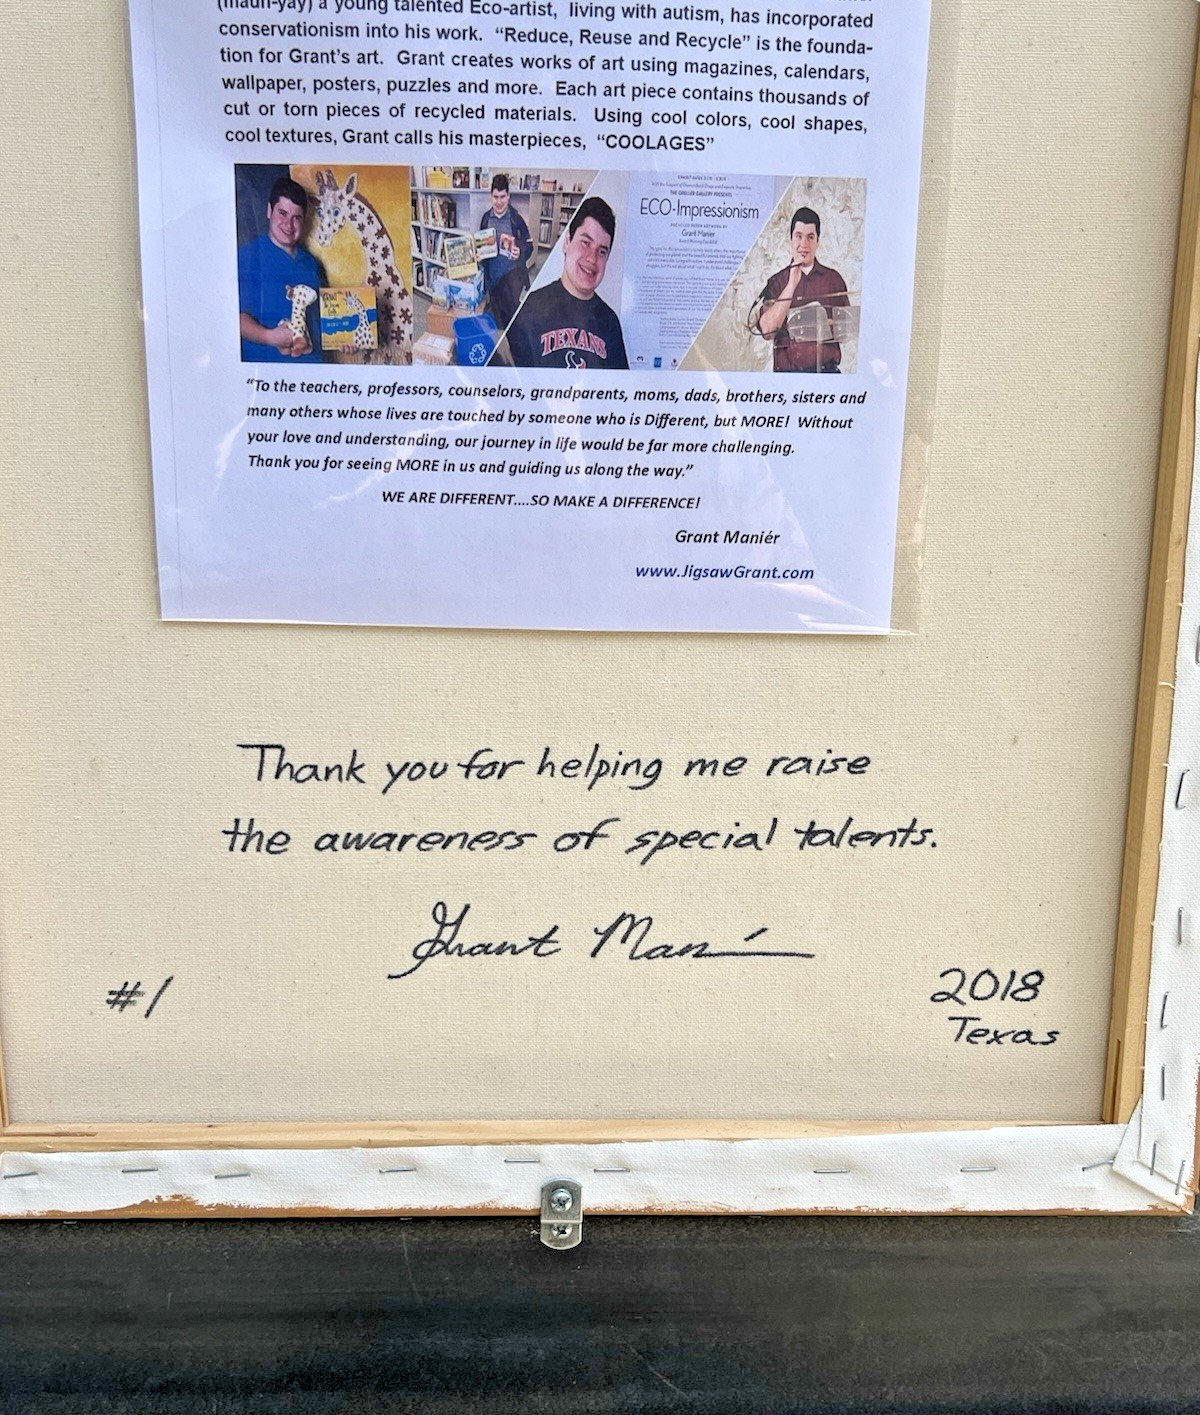 (maun-yay) a young talented Eco-artist, living with autism, has incorporated
conservationism into his work. “Reduce, Reuse and Recycle” is the founda-
tion for Grant’s art. Grant creates works of art using magazines, calendars,
wallpaper, posters, puzzles and more. Each art piece contains thousands of
cut or torn pieces of recycled materials. Using cool colors, cool shapes,
cool textures, Grant calls his masterpieces, “COOLAGES”
THE GRELIER GALLERY PRESENTS
ECO-Impressionism
RECYCLED PAPER ARTWORK BY
Grant Manier
TEXANS
“To the teachers, professors, counselors, grandparents, moms, dads, brothers, sisters and
many others whose lives are touched by someone who is Different, but MORE! Without
your love and understanding, our journey in life would be far more challenging.
Thank you for seeing MORE in us and guiding us along the way.”
WE ARE DIFFERENT....SO MAKE A DIFFERENCE!
Grant Maniér
www.JigsawGrant.com
Thank you for helping me raise
the awareness of special talents.
Grant Maniér
#1
2018
Texas